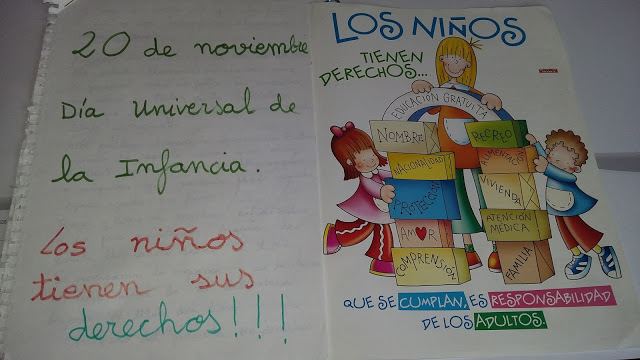 20 de noviembre
Día Universal de
la Infancia.
Los niños
tienen sus
derechos!!!
LOS NIÑOS
TIENEN
DERECHOS...
EDUCACIÓN GRATUITA
NOMBRE
NACIONALIDAD
PROTECCIÓN
AMOR
COMPRENSIÓN
RECREO
ALIMENTACIÓN
VIVIENDA
ATENCIÓN
MEDICA
FAMILIA
QUE SE CUMPLAN, ES RESPONSABILIDAD
DE LOS ADULTOS.